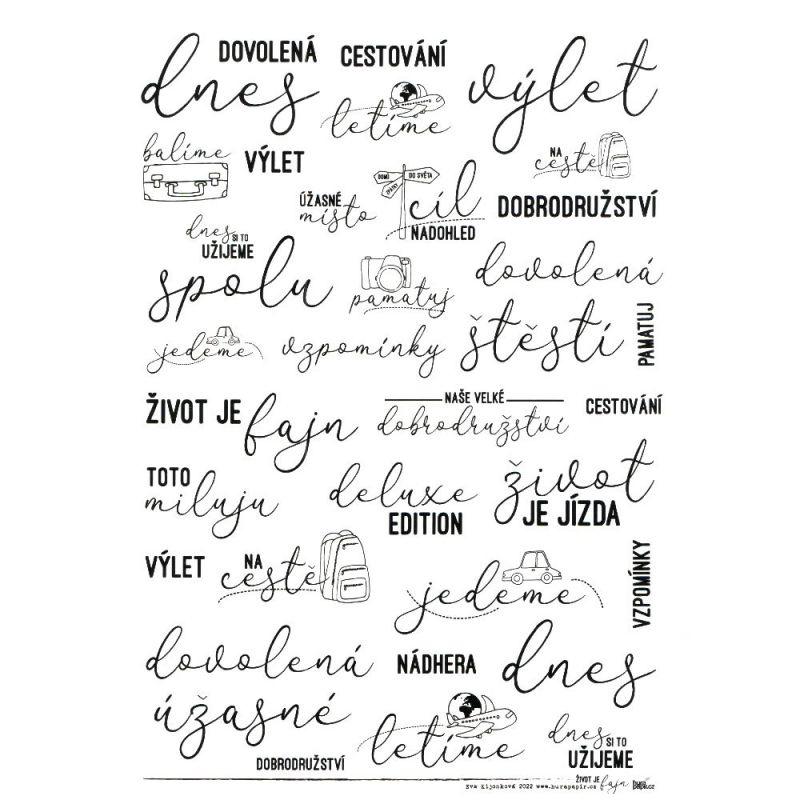 DOVOLENÁ
CESTOVÁNÍ
dnes
letíme
výlet
balíme
VÝLET
NA
cestě
ÚŽASNÉ
místo
DOMŮ
DO SVĚTA
cíl
NADOHLED
DOBRODRUŽSTVÍ
dnes SI TO
UŽIJEME
spolu
pamatuj
dovolená
jedeme
vzpomínky
štěstí
PAMATUJ
ŽIVOT JE fajn
NAŠE VELKÉ
dobrodružství
CESTOVÁNÍ
TOTO
miluju
deluxe
EDITION
život
JE JÍZDA
VÝLET
NA
cestě
jedeme
VZPOMÍNKY
dovolená
NÁDHERA
dnes
úžasné
letíme
DOBRODRUŽSTVÍ
dnes SI TO
UŽIJEME
Eva Kijonková 2022 www.burapapir.cz
ŽIVOT JE fajn